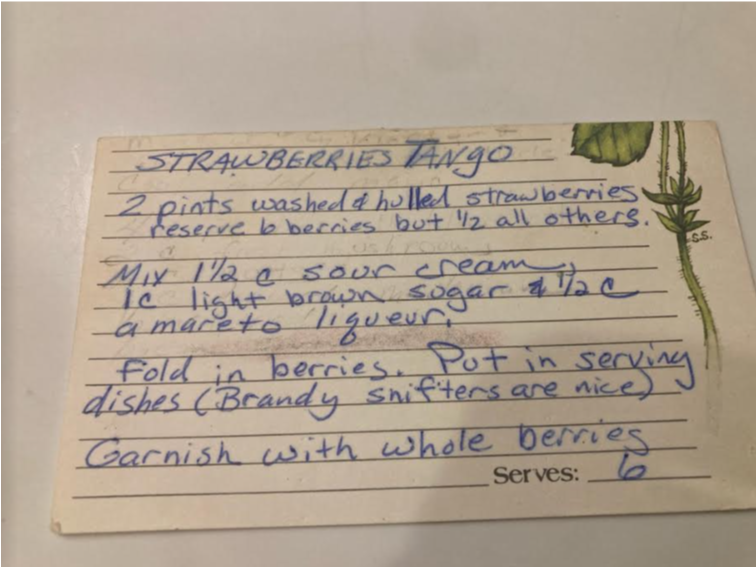 STRAWBERRIES TANGO
2 pints washed & hulled strawberries
reserve 6 berries but 1/2 all others.
Mix 1 1/2 c sour cream,
1c light brown sugar & 1/2 c
amareto liqueur.
Fold in berries. Put in serving
dishes (Brandy snifters are nice)
Garnish with whole berries
Serves: 6
S.S.